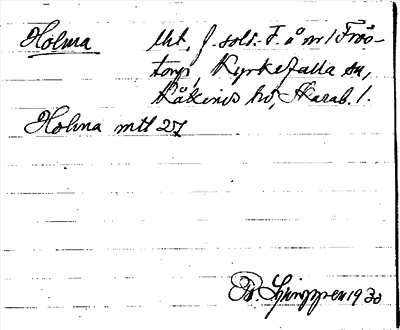 Holma lht, f. sold.-T. å nr 1 Frös-
torp, Kyrkefalla sn,
Kåkinds hd, Skarab. l.
Holma mtl 27
B. Ljunggren 1933